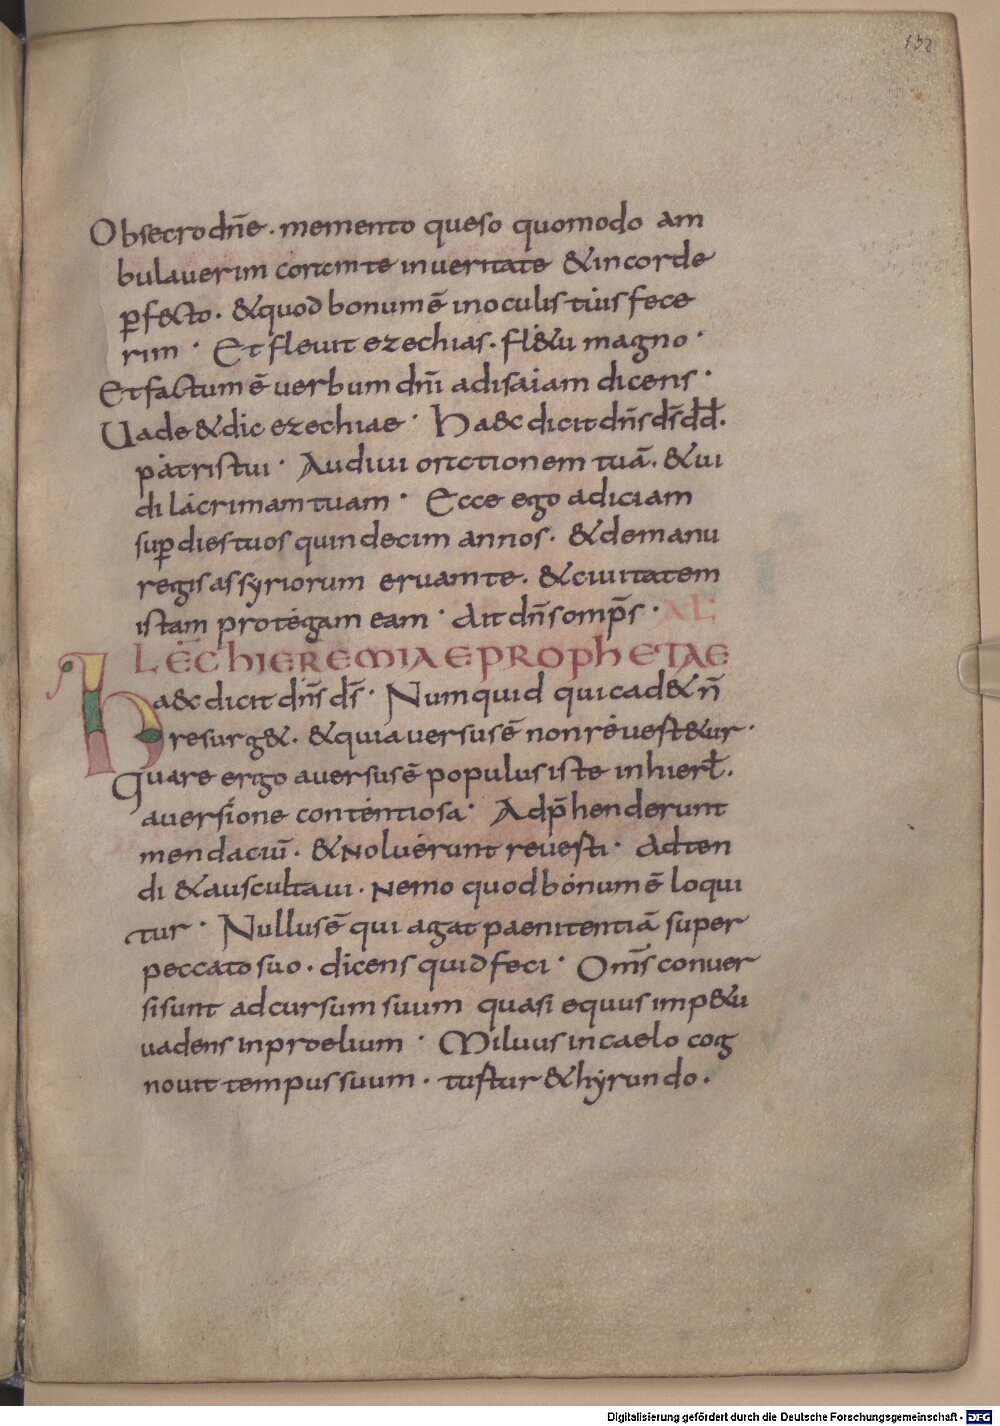 132
Obsecro dn̄e · memento queso quomodo am
bulauerim coram te in ueritate & in corde
ꝑf&cto · & quod bonum ē in oculis tuis fece
rim · Et fleuit ezechias · fl&u magno ·
Et factum ē uerbum dn̄i ad isaiam dicens ·
Uade & dic ezechiae · Haec dicit dn̄s ds̄ dd̄ ·
patris tui · Audiui orationem tuā · & ui
di lacrimam tuam · Ecce ego adiciam
suꝑ dies tuos quindecim annos · & de manu
regis assyriorum eruam te · & ciuitatem
istam protegam eam · Ait dn̄s omp̄s ·
XL
LEC̄ HIEREMIAE PROPHETAE
Haec dicit dn̄s ds̄ · Numquid qui cad& n̄
resurg& · & quia uersus ē non reuert&ur ·
Quare ergo auersus ē populus iste in hierł ·
auersione contentiosa · Adp̄henderunt
mendaciū · & noluerunt reuerti · Adten
di & auscultaui · nemo quod bonum ē loqui
tur · Nullus ē qui agat paenitentiā super
peccato suo · dicens quid feci · Om̄s conuer
si sunt ad cursum suum quasi equus imp&u
uadens in proelium · Miluus in caelo cog
nouit tempus suum · turtur & hyrundo ·
Digitalisierung gefördert durch die Deutsche Forschungsgemeinschaft - DFG